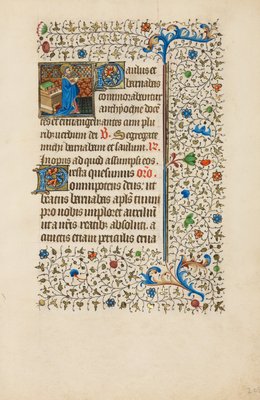 Paulus et
barnabas
commorabantur
anthyochie doce
tes et euuangelizantes cum plu
ribus uerbum dei V Segregate
michi barnabam et saulum. R
In opus ad quod assumpsi eos.
Presta quesumus oro
omnipotens deus: ut
beatus barnabas apls tuum
pro nobis imploret auxiliu
ut a nris reatibz absoluti, a
cunctis etiam periculis erua